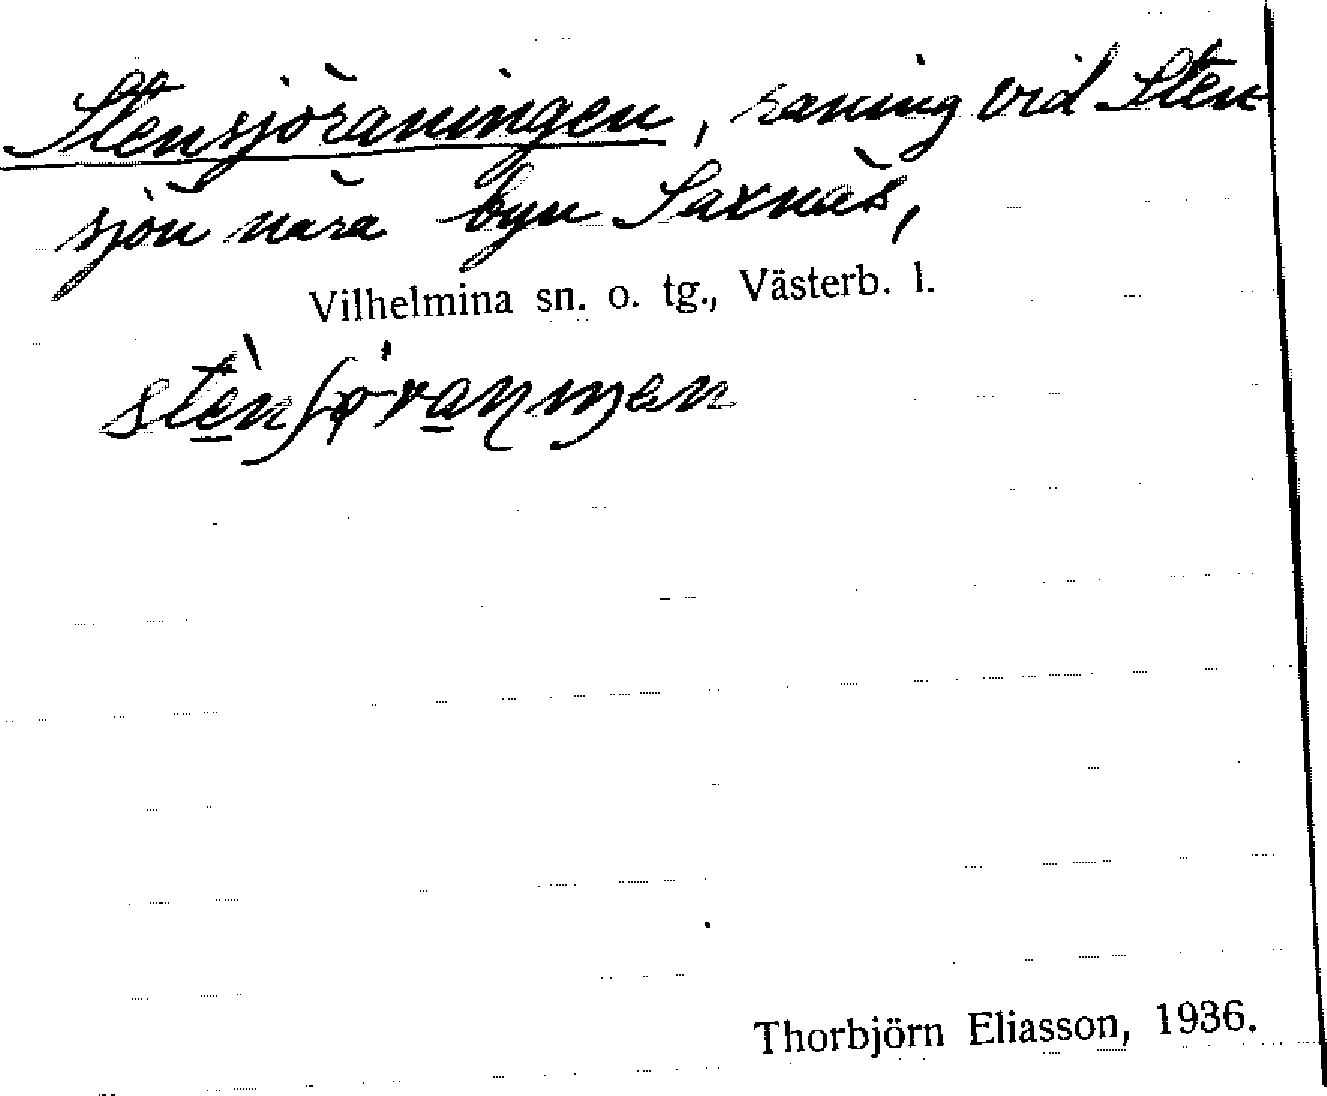 Stensjöraningen, raning vid Sten-
sjön nära byn Saxnäs,
Vilhelmina sn. o. tg., Västerb. l.
Thorbjörn Eliasson, 1936.